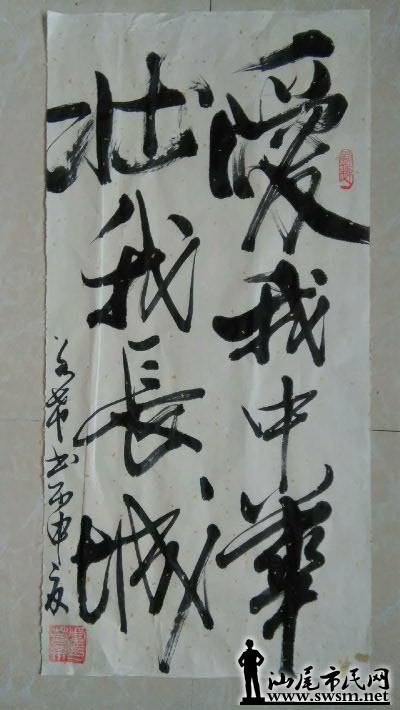 愛我中華
壯我長城
书丙申夏
汕尾市民网
www.swsm.net